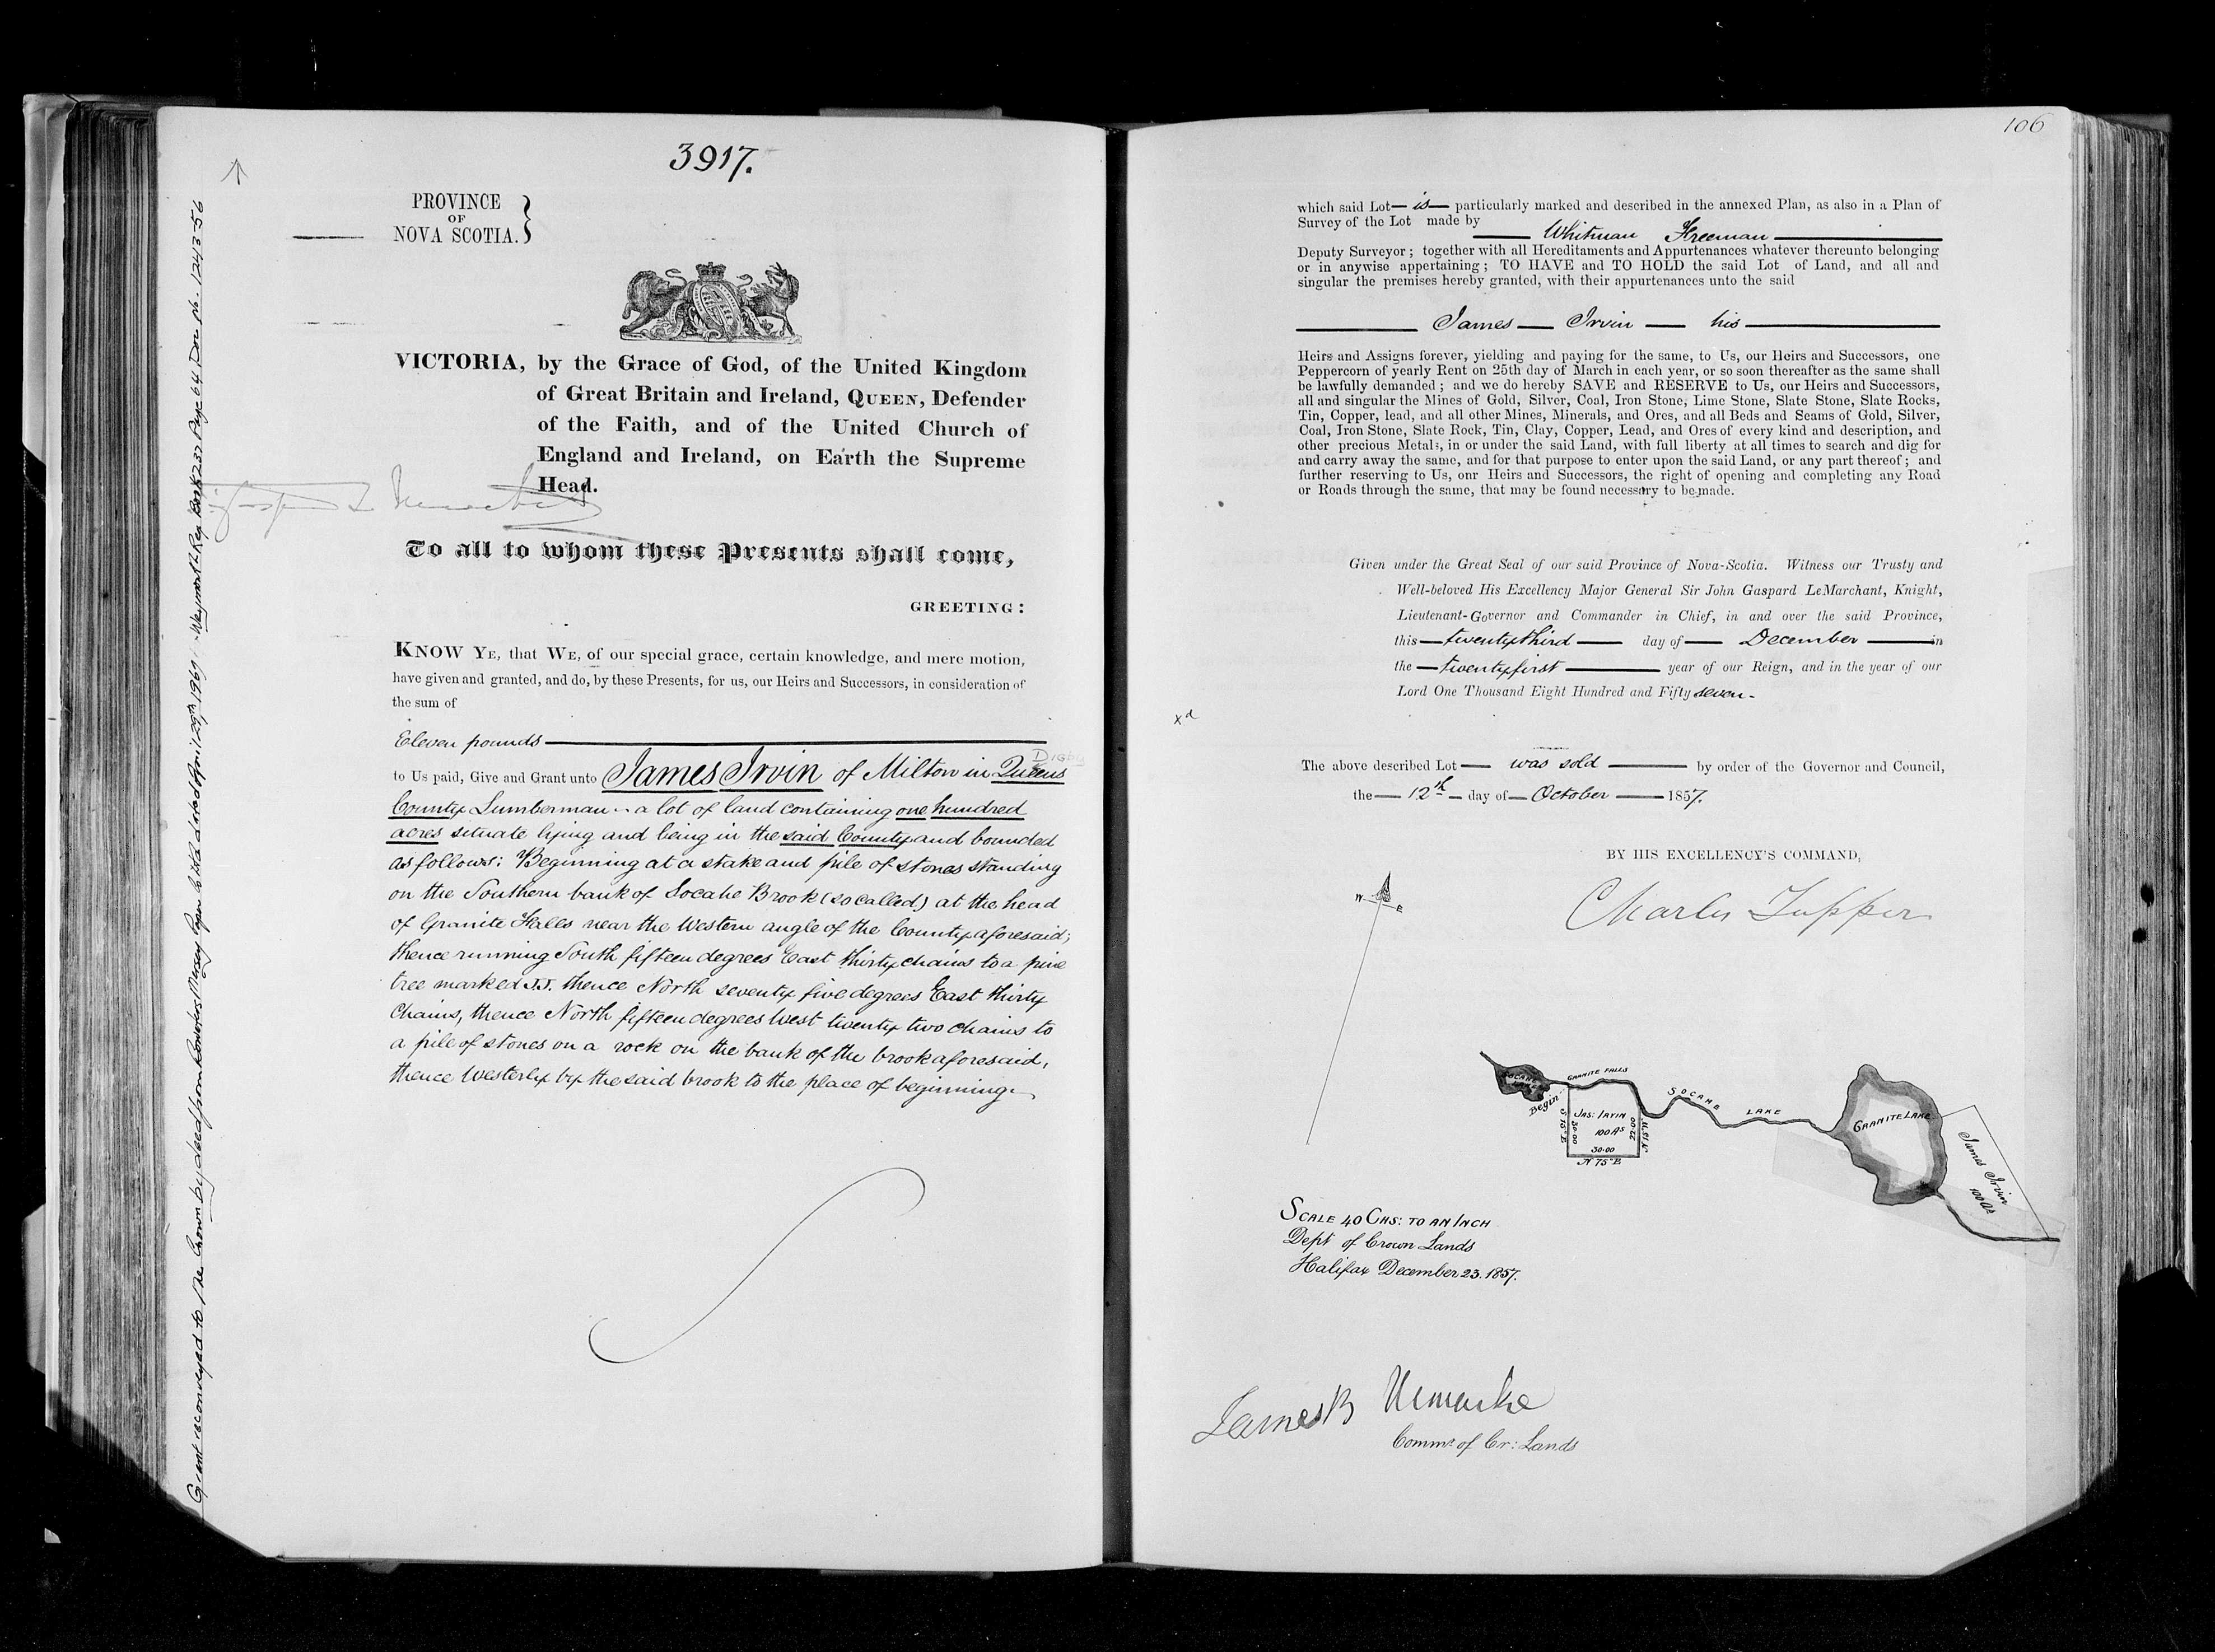 3917.
PROVINCE
OF
NOVA SCOTIA.
VICTORIA, by the Grace of God, of the United Kingdom
of Great Britain and Ireland, QUEEN, Defender
of the Faith, and of the United Church of
England and Ireland, on Earth the Supreme
Head.
To all to whom these Presents shall come,
GREETING:
KNOW YE, that WE, of our special grace, certain knowledge, and mere motion,
have given and granted, and do, by these Presents, for us, our Heirs and Successors, in consideration of
the sum of
Eleven pounds
Digby
to Us paid, Give and Grant unto James Irvin of Milton in Queens
County Lumberman - a lot of land containing one hundred
acres situate lying and being in the said County and bounded
as follows: Beginning at a stake and pile of stones standing
on the Southern bank of Socahe Brook (so called) at the head
of Granite Falls near the Western angle of the County aforesaid;
thence running South fifteen degrees East thirty chains to a pine
tree marked J.J. thence North seventy five degrees East thirty
Chains, thence North fifteen degrees West twenty two chains to
a pile of stones on a rock on the bank of the brook aforesaid,
thence Westerly by the said brook to the place of beginning
Grant reconveyed to the Crown by deed from Bowaters Mersey Paper Co Ltd dated April 29th, 1969 - Weymouth Reg Book 232 Page 64 Doc No. 1243-56
106
which said Lot is particularly marked and described in the annexed Plan, as also in a Plan of
Survey of the Lot made by
Whitman Freeman
Deputy Surveyor; together with all Hereditaments and Appurtenances whatever thereunto belonging
or in anywise appertaining; TO HAVE and TO HOLD the said Lot of Land, and all and
singular the premises hereby granted, with their appurtenances unto the said
James Irvin his
Heirs and Assigns forever, yielding and paying for the same, to Us, our Heirs and Successors, one
Peppercorn of yearly Rent on 25th day of March in each year, or so soon thereafter as the same shall
be lawfully demanded; and we do hereby SAVE and RESERVE to Us, our Heirs and Successors,
all and singular the Mines of Gold, Silver, Coal, Iron Stone, Lime Stone, Slate Stone, Slate Rocks,
Tin, Copper, lead, and all other Mines, Minerals, and Ores, and all Beds and Seams of Gold, Silver,
Coal, Iron Stone, Slate Rock, Tin, Clay, Copper, Lead, and Ores of every kind and description, and
other precious Metals, in or under the said Land, with full liberty at all times to search and dig for
and carry away the same, and for that purpose to enter upon the said Land, or any part thereof; and
further reserving to Us, onr Heirs and Successors, the right of opening and completing any Road
or Roads through the same, that may be found necessary to be made.
Given under the Great Seal of our said Province of Nova-Scotia. Witness our Trusty and
Well-beloved His Excellency Major General Sir John Gaspard LeMarchant, Knight,
Lieutenant-Governor and Commander in Chief, in and over the said Province,
this twenty third day of December in
the twenty first year of our Reign, and in the year of our
Lord One Thousand Eight Hundred and Fifty seven.
xd
The above described Lot was sold by order of the Governor and Council,
the 12th day of October 1857.
BY HIS EXCELLENCY'S COMMAND,
Charles Tupper
W E
SOCAHE LAKE
GRANITE FALLS
Begin
SOCAHE LAKE
GRANITE LAKE
JAS: IRVIN
100 As
S 15° E
30.00
22.00
N 15 W
30.00
N 75° E
James Irvin
100 As
SCALE 40 CHS: TO AN INCH
Dept of Crown Lands
Halifax December 23. 1857.
James B Uniacke
Commr of Cr: Lands